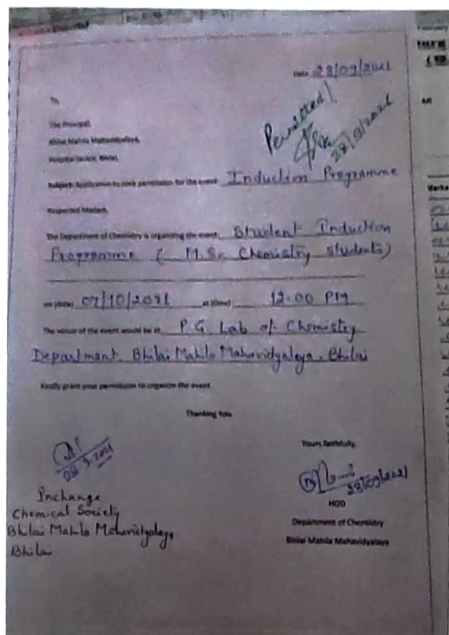 Date 28/09/2021
To,
The Principal,
Bhilai Mahila Mahavidyalaya,
Hospital Sector, Bhilai,
Permitted
28/9/2021
Subject: Application to seek permission for the event Induction Programme
Respected Madam,
The Department of Chemistry is organizing the event Student Induction
Programme ( M.Sc Chemistry students)
on (date) 07/10/2021 at (time) 12.00 PM
The venue of the event would be in P.G. Lab of Chemistry
Department, Bhilai Mahila Mahavidyalaya, Bhilai
Kindly grant your permission to organize the event
Thanking You
Yours faithfully,
28/09/2021
HOD
Department of Chemistry
Bhilai Mahila Mahavidyalaya
28.9.2021
Incharge
Chemical Society
Bhilai Mahila Mahavidyalaya
Bhilai